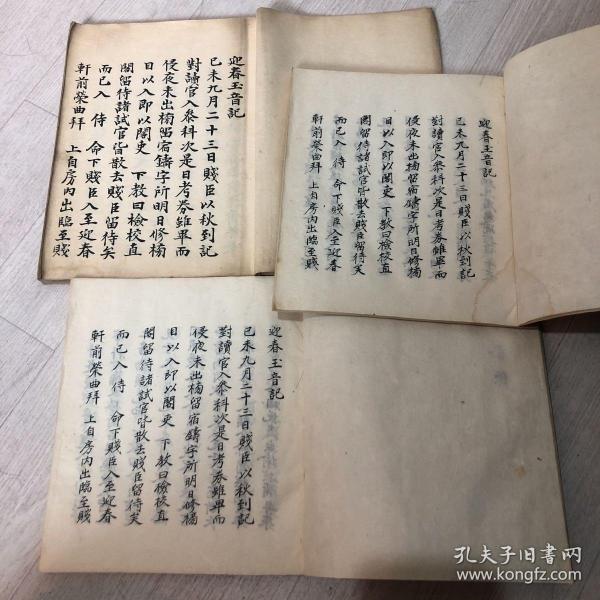 迎春玉音記
己未九月二十三日賤臣以秋到記
對讀官入叅科次是日考券雖畢而
侵夜未出楠留宿鑄字所明日修楠
日以入即以閣吏 下教曰檢校直
閣留待諸試官皆散去賤臣留待矣
而已入 侍 命下賤臣入至迎春
軒前榮曲拜 上自房內出臨至賤
迎春玉音記
己未九月二十三日賤臣以秋到記
對讀官入叅科次是日考券雖畢而
侵夜未出楠留宿鑄字所明日修楠
日以入即以閣吏 下教曰檢校直
閣留待諸試官皆散去賤臣留待矣
而已入 侍 命下賤臣入至迎春
軒前榮曲拜 上自房內出臨至賤
迎春玉音記
己未九月二十三日賤臣以秋到記
對讀官入叅科次是日考券雖畢而
侵夜未出楠留宿鑄字所明日修楠
日以入即以閣吏 下教曰檢校直
閣留待諸試官皆散去賤臣留待矣
而已入 侍 命下賤臣入至迎春
軒前榮曲拜 上自房內出臨至賤
孔夫子旧书网
www.kongfz.com